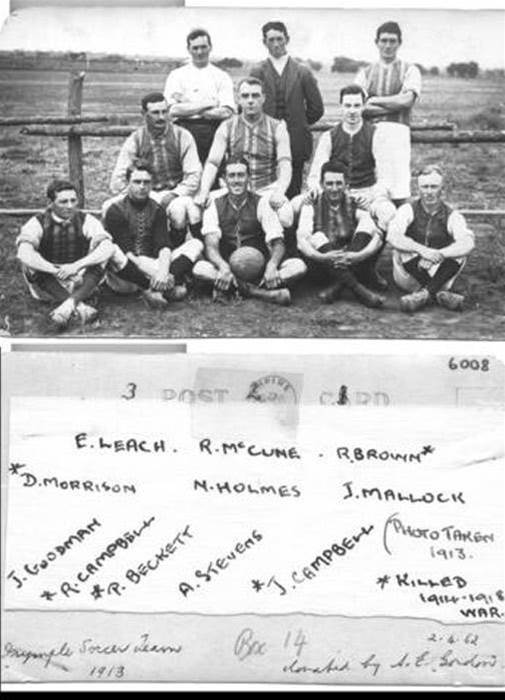 6008
3 2 1
POST CARD
E. LEACH. R. McCUNE. R. BROWN*
*D. MORRISON N. HOLMES J. MALLOCK
J. GOODMAN
*R. CAMPBELL
*R. BECKETT
A. STEVENS
*J. CAMPBELL
(PHOTO TAKEN
1913.
*KILLED
1914-1918
WAR.
Irymple Soccer Team
1913
Box 14
2-4-62
donated by A. E. Gordon